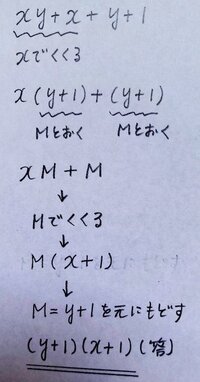 xy+x+y+1
xでくくる
x(y+1)+(y+1)
Mとおく Mとおく
xM+M
↓
Mでくくる
↓
M(x+1)
↓
M=y+1を元にもどす
(y+1)(x+1)(答)